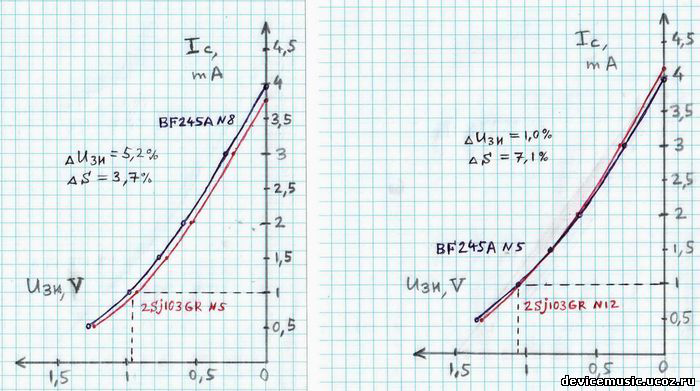 Iс,
mA
4,5
4
3,5
3
2,5
2
1,5
1
0,5
BF245A N8
ΔUзи = 5,2%
ΔS = 3,7%
Uзи, V
2Sj103GR N5
1,5
1
0,5
0
Iс,
mA
4,5
4
3,5
3
2,5
2
1,5
1
0,5
ΔUзи = 1,0%
ΔS = 7,1%
BF245A N5
Uзи, V
2Sj103GR N12
1,5
1
0,5
0
devicemusic.ucoz.ru